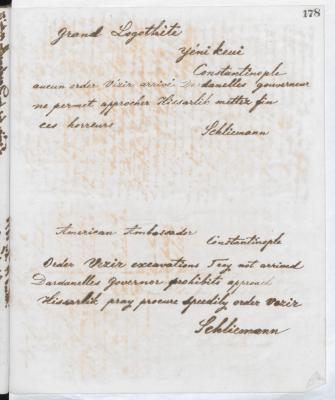 178
Grand Logothète
Yénikeui
Constantinople
aucun order Vizir arrivé Dardanelles gouverneur
ne permet approcher Hissarlik mettre fin
ces horreurs
Schliemann
American Ambassador
Constantinople
Order Vezir excavations Troy not arrived
Dardanelles Governor prohibits approach
Hissarlik pray procure speedily order Vezir
Schliemann